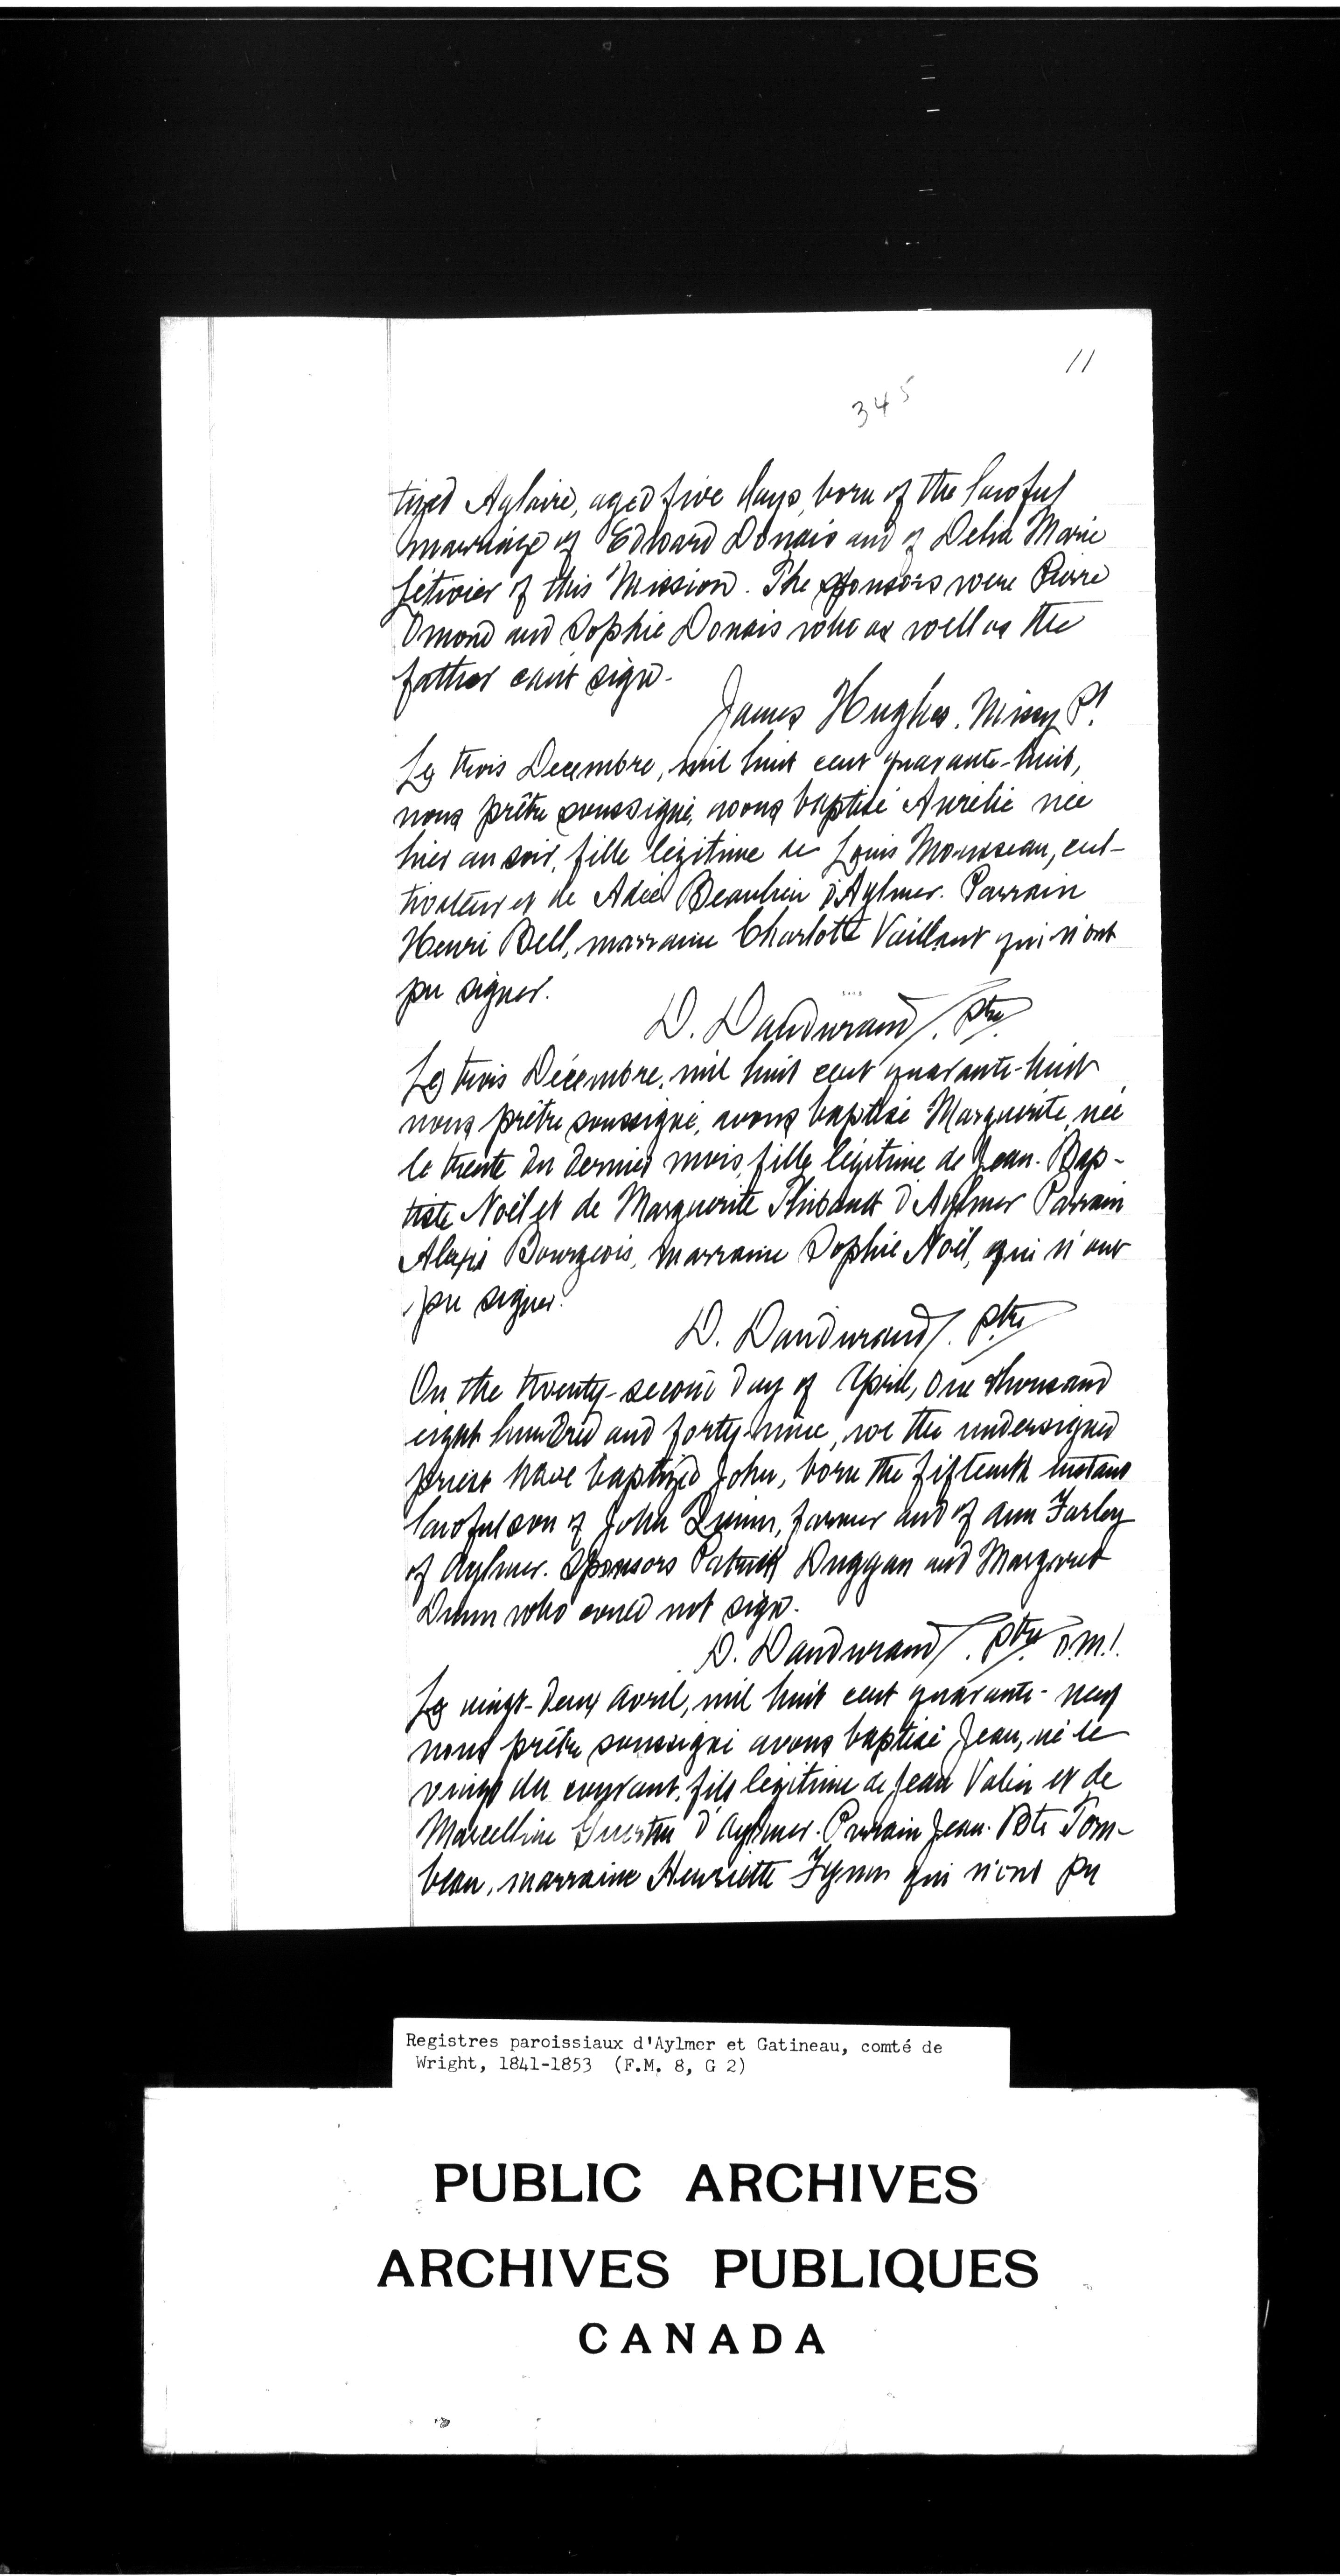 11
345
tized Aglaire, aged five days, born of the lawful
marriage of Edward Donais and of Delia Marie
Letivier of this Mission. The sponsors were Pierre
Omond and Sophie Donais who as well as the
father can't sign.
James Hughes. Missy Pt.
Le trois Decembre, mil huit cent quarante-huit,
nous prêtre soussigné, avons baptisé Aurélie née
hier au soir, fille légitime de Louis Mousseau, cul-
tivateur et de Adée Beaulieu d'Aylmer. Parrain
Henri Bell, marraine Charlotte Vaillant qui n'ont
pu signer.
D. Dandurand, ptre
Le trois Décembre, mil huit cent quarante-huit
nous prêtre soussigné, avons baptisé Marguerite, née
le trente du dernier mois, fille légitime de Jean-Bap-
tiste Noël et de Marguerite Thibault d'Aylmer Parrain
Alexis Bourgeois, marraine Sophie Noël, qui n'ont
pu signer.
D. Dandurand, ptre
On the twenty-second day of April, one thousand
eight hundred and forty-nine, we the undersigned
priest have baptized John, born the fifteenth instant
lawful son of John Quinn, farmer and of Ann Farley
of Aylmer. Sponsors Patrick Duggan and Margaret
Dunn who could not sign.
D. Dandurand, ptre O.M.I.
Le vingt-deux avril, mil huit cent quarante-neuf
nous prêtre soussigné avons baptisé Jean, né le
vingt du courant, fils légitime de Jean Valin et de
Marcelline d'Aylmer. Parrain Jean-Bte Tom-
beau, marraine Henriette Fynn qui n'ont pu
Registres paroissiaux d'Aylmer et Gatineau, comté de
Wright, 1841-1853 (F.M. 8, G 2)
PUBLIC ARCHIVES
ARCHIVES PUBLIQUES
CANADA